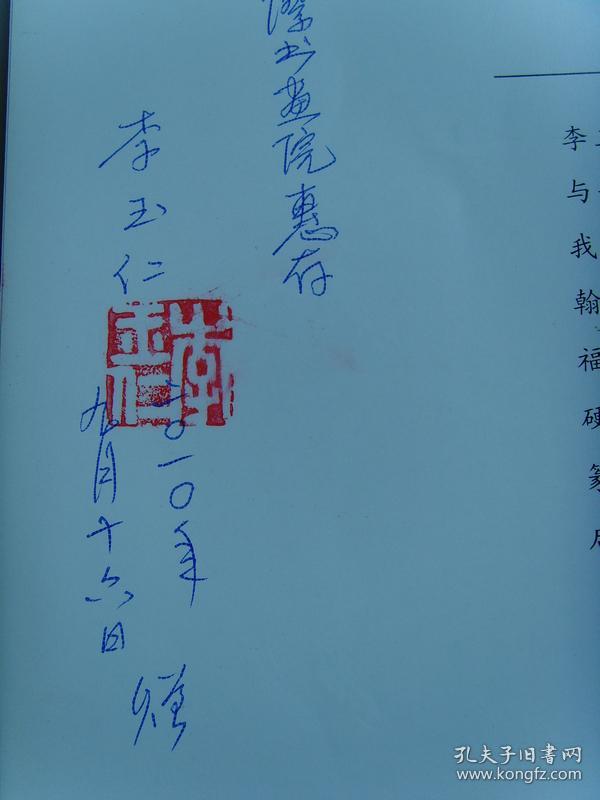 李
与
我
翰
福
硬
篆
际书画院惠存
李玉仁
李玉仁
二〇一〇年
九月十六日
赠
孔夫子旧书网
www.kongfz.com